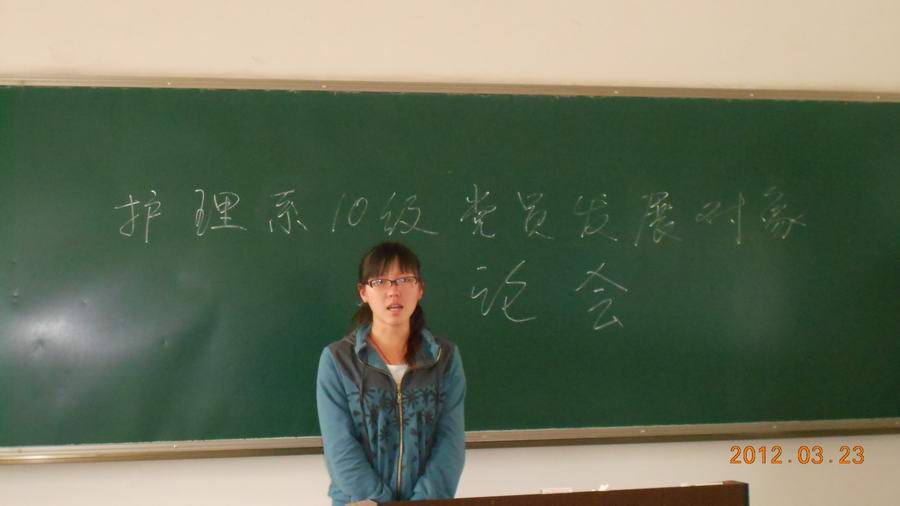 护理系10级党员发展对象
论会
2012.03.23